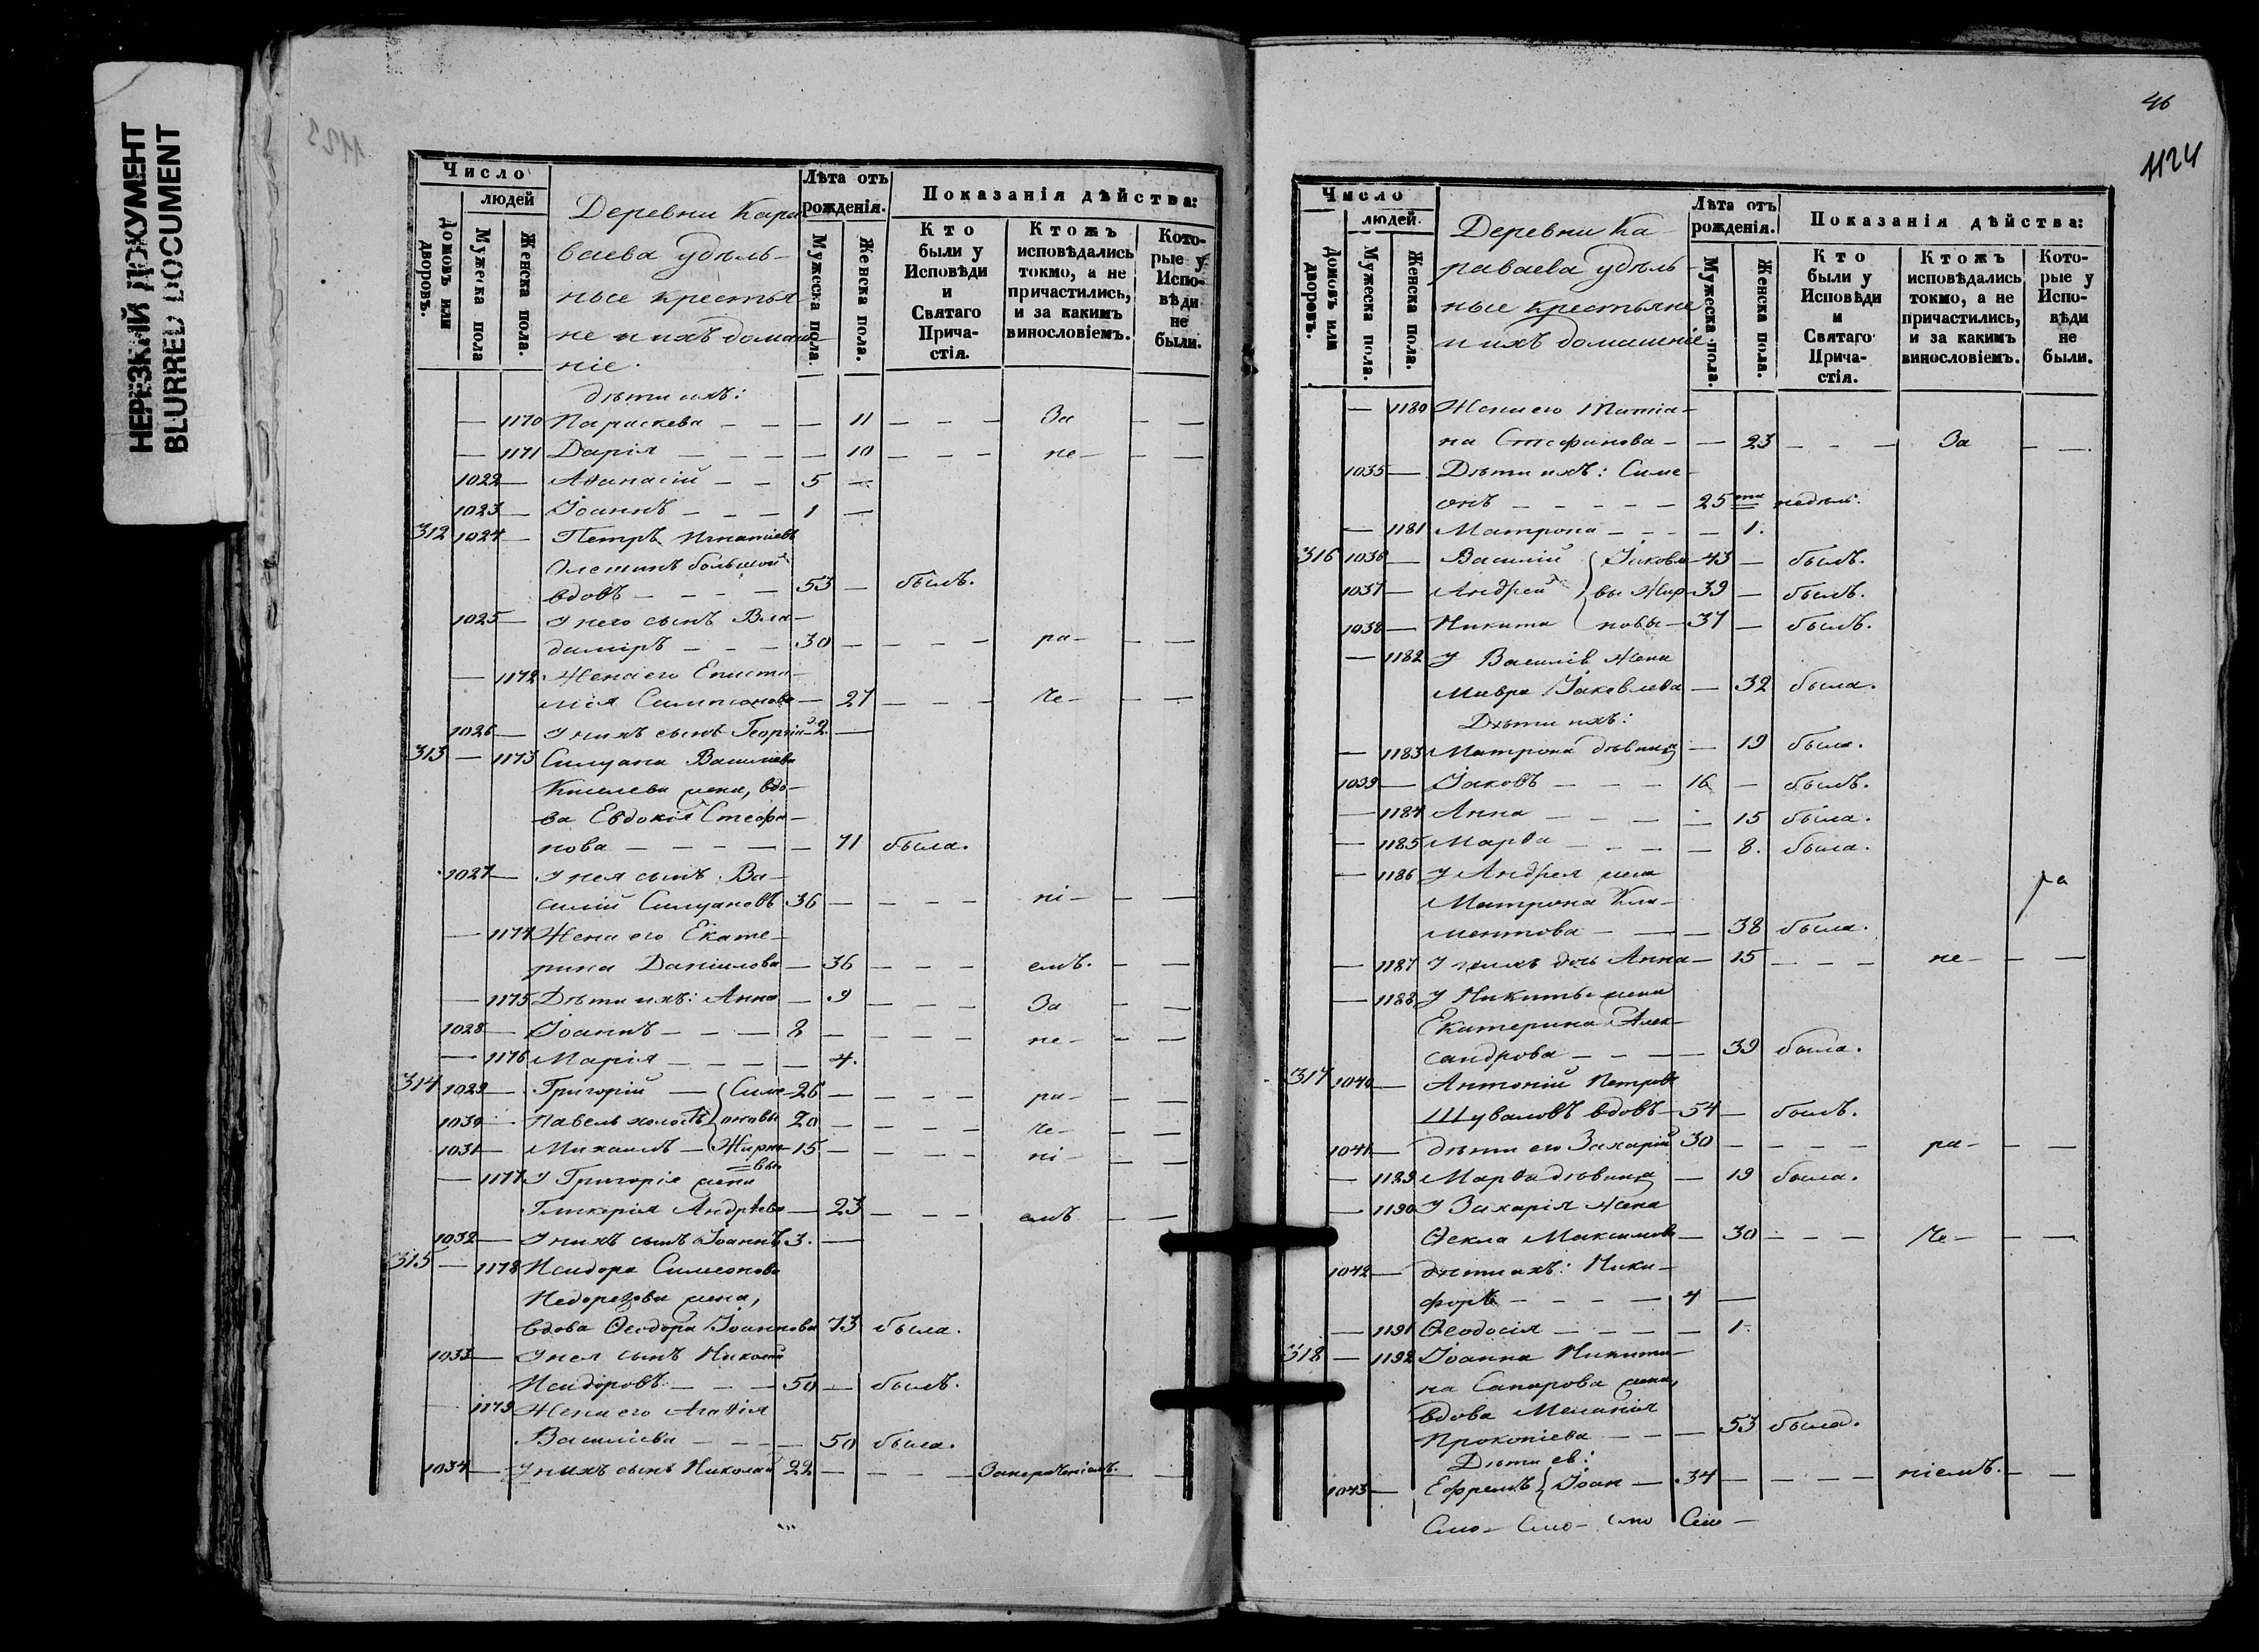 НЕРЕЗКИЙ ДОКУМЕНТ
BLURRED DOCUMENT
1123
Число
людей
Домовъ или дворовъ.
Мужеска пола
Женска пола.
Деревни Кара
ваева удѣль-
ные крестья
не и ихъ домаш-
ніе.
Лѣта отъ рожденія.
Мужеска пола.
Женска пола.
Показанія дѣйства:
Кто были у Исповѣди и Святаго Прича-стія.
Ктожъ исповѣдались токмо, а не причастились, и за какимъ винословіемъ.
Кото-рые у Испо-вѣди не были.
дѣти ихъ:
— 1170 Параскева — — — 11 — — — За — —
— 1171 Дарія — — — — 10 — — — не — — —
1022 — Аѳанасій — — 5 —
1023 — Іоаннъ — — — 1 —
312 1024 — Петръ Игнатіевъ
большой
вдовъ — — — — 53 — былъ.
1025 — У него сынъ Вла-
диміръ — — — 30 — — — — ра — — —
— 1172 Жена его Еписти-
мія Сампсонова — 27 — — — че — — —
1026 — У нихъ сынъ Георгій — 2 —
313 — 1173 Силуана Василіева
Киселева жена, вдо-
ва Евдокія Стефа-
нова — — — — — 71 была.
1027 — У нея сынъ Ва-
силій Силуановъ 36 — — — — ні — — —
— 1174 Жена его Екате-
рина Даніилова — 36 — — — емъ. — —
— 1175 Дѣти ихъ: Анна — 9 — — — За — —
1028 — Іоаннъ — — — 8 — — — — не — — —
— 1176 Марія — — — — 4.
314 1029 — Григорій — Симе- 26 — — — — ра — — —
1030 — Павелъ холостъ оновы 20 — — — — че — — —
1031 — Михаилъ — Жирно- 15 — — — — ні — — —
вы
— 1177 У Григорія жена
Гликерія Андрѣева — 23 — — — емъ — —
1032 — У нихъ сынъ Іоаннъ 3. —
315 — 1178 Исидора Симеонова
Недорезова жена,
вдова Ѳеодора Іоаннова 73 была.
1033 — У нея сынъ Николай
Исидоровъ — — — 50 — былъ.
— 1179 Жена его Агаѳія
Василіева — — — — 50 была.
1034 — У нихъ сынъ Николай 22 — — — — За нераченіемъ. — —
46
1124
Число
людей.
Домовъ или дворовъ.
Мужеска пола.
Женска пола.
Деревни Ка-
раваева удѣль-
ные крестьяне
и ихъ домашніе
Лѣта отъ рожденія.
Мужеска пола.
Женска пола.
Показанія дѣйства:
Кто были у Исповѣди и Святаго Прича-стія.
Ктожъ исповѣдались токмо, а не причастились, и за какимъ винословіемъ.
Кото-рые у Испо-вѣди не были.
— 1180 Жена его Татіа-
на Стефанова — — 23 — — — За — —
1035 — Дѣти ихъ: Симе-
онъ — — — — — 25ти недѣль.
— 1181 Матрона — — — — 1.
316 1036 — Василій Іаковле- 43 — былъ.
1037 — Андрей вы Жир- 39 — былъ.
1038 — Никита новы — 37 — былъ.
— 1182 У Василія жена
Мавра Іаковлева — 32 была.
Дѣти ихъ:
— 1183 Матрона дѣвица — 19 была.
1039 — Іаковъ — — — 16 — былъ.
— 1184 Анна — — — — 15 была.
— 1185 Марѳа — — — — 8. была.
— 1186 У Андрея жена
Матрона Кли-
ментова — — — 38 была.
ра
— 1187 У нихъ дочь Анна — 15 — — — не — — —
— 1188 У Никиты жена
Екатерина Алек-
сандрова — — — — 39 была.
317 1040 — Антоній Петровъ
Шуваловъ вдовъ — 54 — былъ.
1041 — дѣти его Захарій 30 — — — — ра — — —
— 1189 Марѳа дѣвица — 19 была.
— 1190 У Захарія жена
Ѳекла Максимова — 30 — — — че — — —
1042 — дѣти ихъ: Ники-
форъ — — — — 4 —
— 1191 Ѳеодосія — — — — 1.
318 — 1192 Іоанна Никити-
на Сапарова жена,
вдова Меланія
Прокопіева — — — 53 была.
Дѣти ея:
1043 — Ефремъ Іоан — 34 — — — — ніемъ. — —